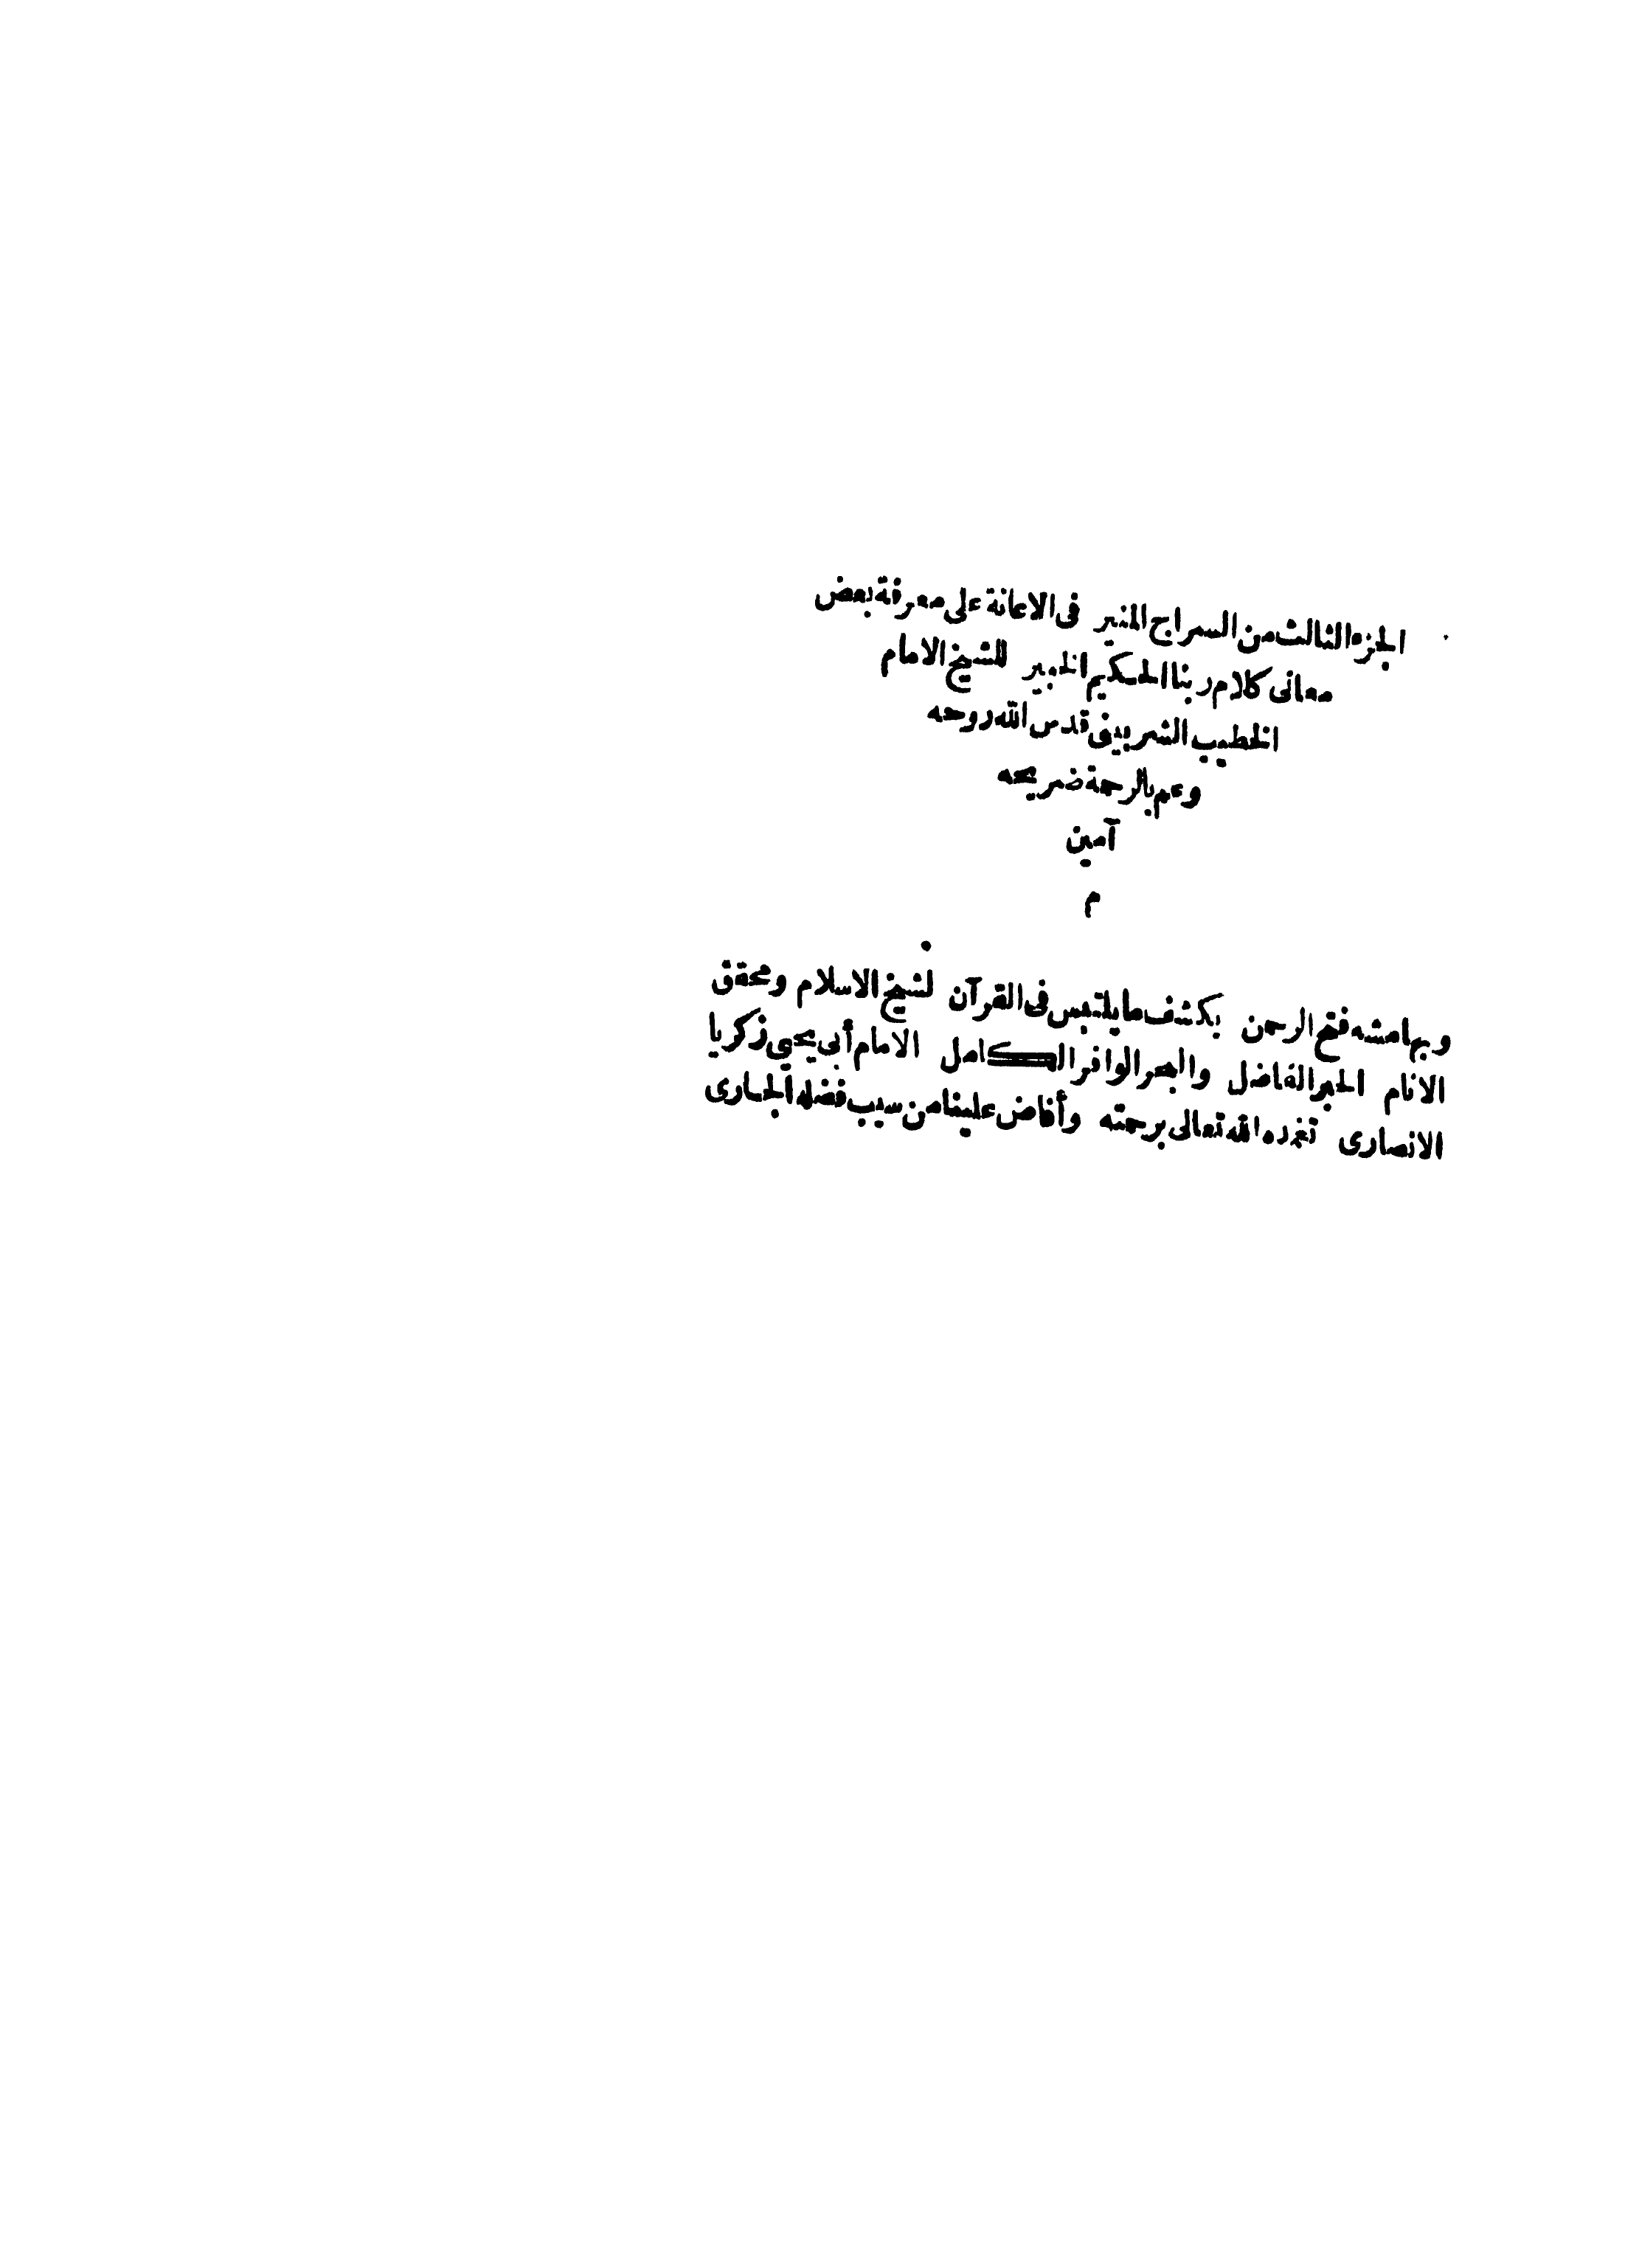 الجزء الثالث من السراج المنير فى الاعانة على معرفة بعض
معانى كلام ربنا الحكيم الخبير للشيخ الامام
الخطيب الشربينى قدس الله روحه
وعم بالرحمة ضريحه
آمين
م
وبهامشه فتح الرحمن بكشف ما يلتبس فى القرآن لشيخ الاسلام ومحقق
الانام الحبر الفاضل والبحر الوافر الكامل الامام أبى يحيى زكريا
الانصارى تغمده الله تعالى برحمته وأفاض علينا من سيب فضله الجارى